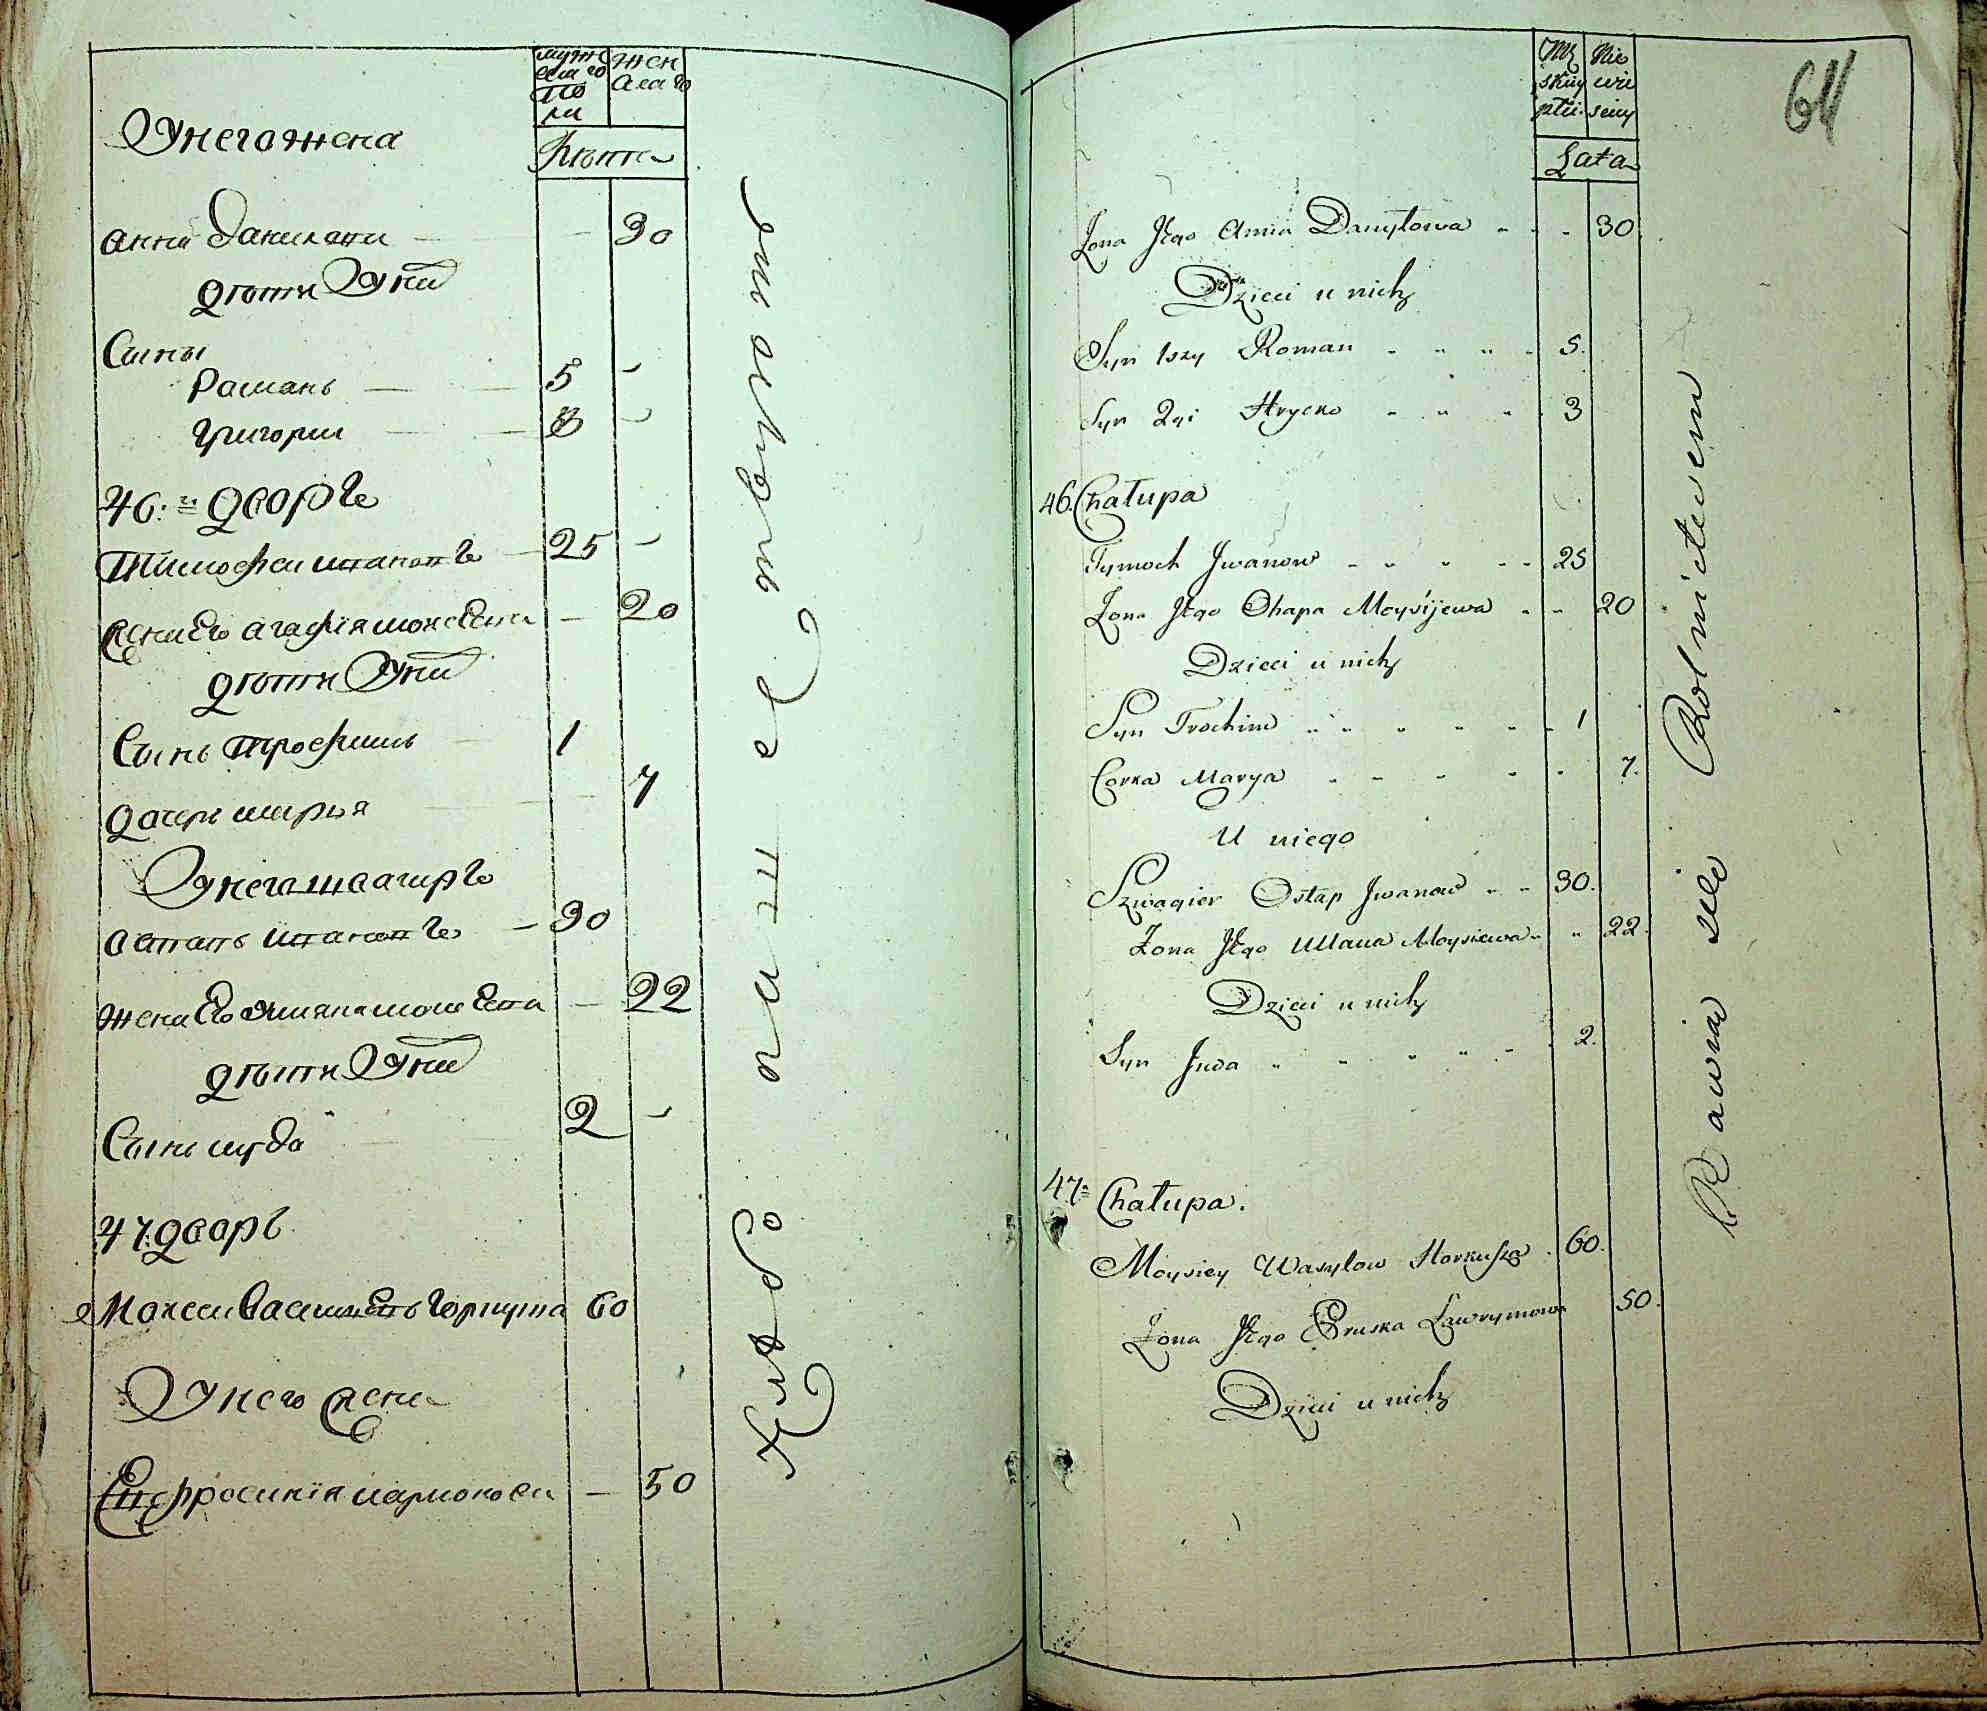 мужеска го по ла
женскаго
Лѣта
У него жена
Анна Данилова 30
дѣти У них
Сыны
Романъ 5
Григори 3
46: дворъ
Тимофеи Ивановъ 25
жена Его Агафия моисеева 20
дѣти У них
Сынъ трофимъ 1
дочерь марья 7
У него швагиръ
Остапъ Ивановъ 30
жена Его Уляна моисеева 22
дѣти У них
Сынъ июда 2
47: дворъ
Моисеи Васильевъ Горкуша 60
У него жена
Ефросиния 50
Mę skiey płci
Nie wie sciey
Lata
64
Żona Jego Anna Danyłowa 30
Dzieci u nich
Syn 1szy Roman 5.
Syn 2gi Hrycko 3
46. Chałupa
Tymoch Jwanow 25
Żona Jego Ohapa Moysijewa 20
Dzieci u nich
Syn Trochim 1
Corka Marya 7.
U niego
Szwagier Ostap Jwanow 30.
Żona Jego Ullana Moysiewa 22.
Dzieci u nich
Syn Juda 2.
47. Chałupa.
Moysiey Wasylow Horkusza 60.
Żona Jego Pruska Ławrymowa 50.
Dzieci u nich
Rawin selo Rolnictwem